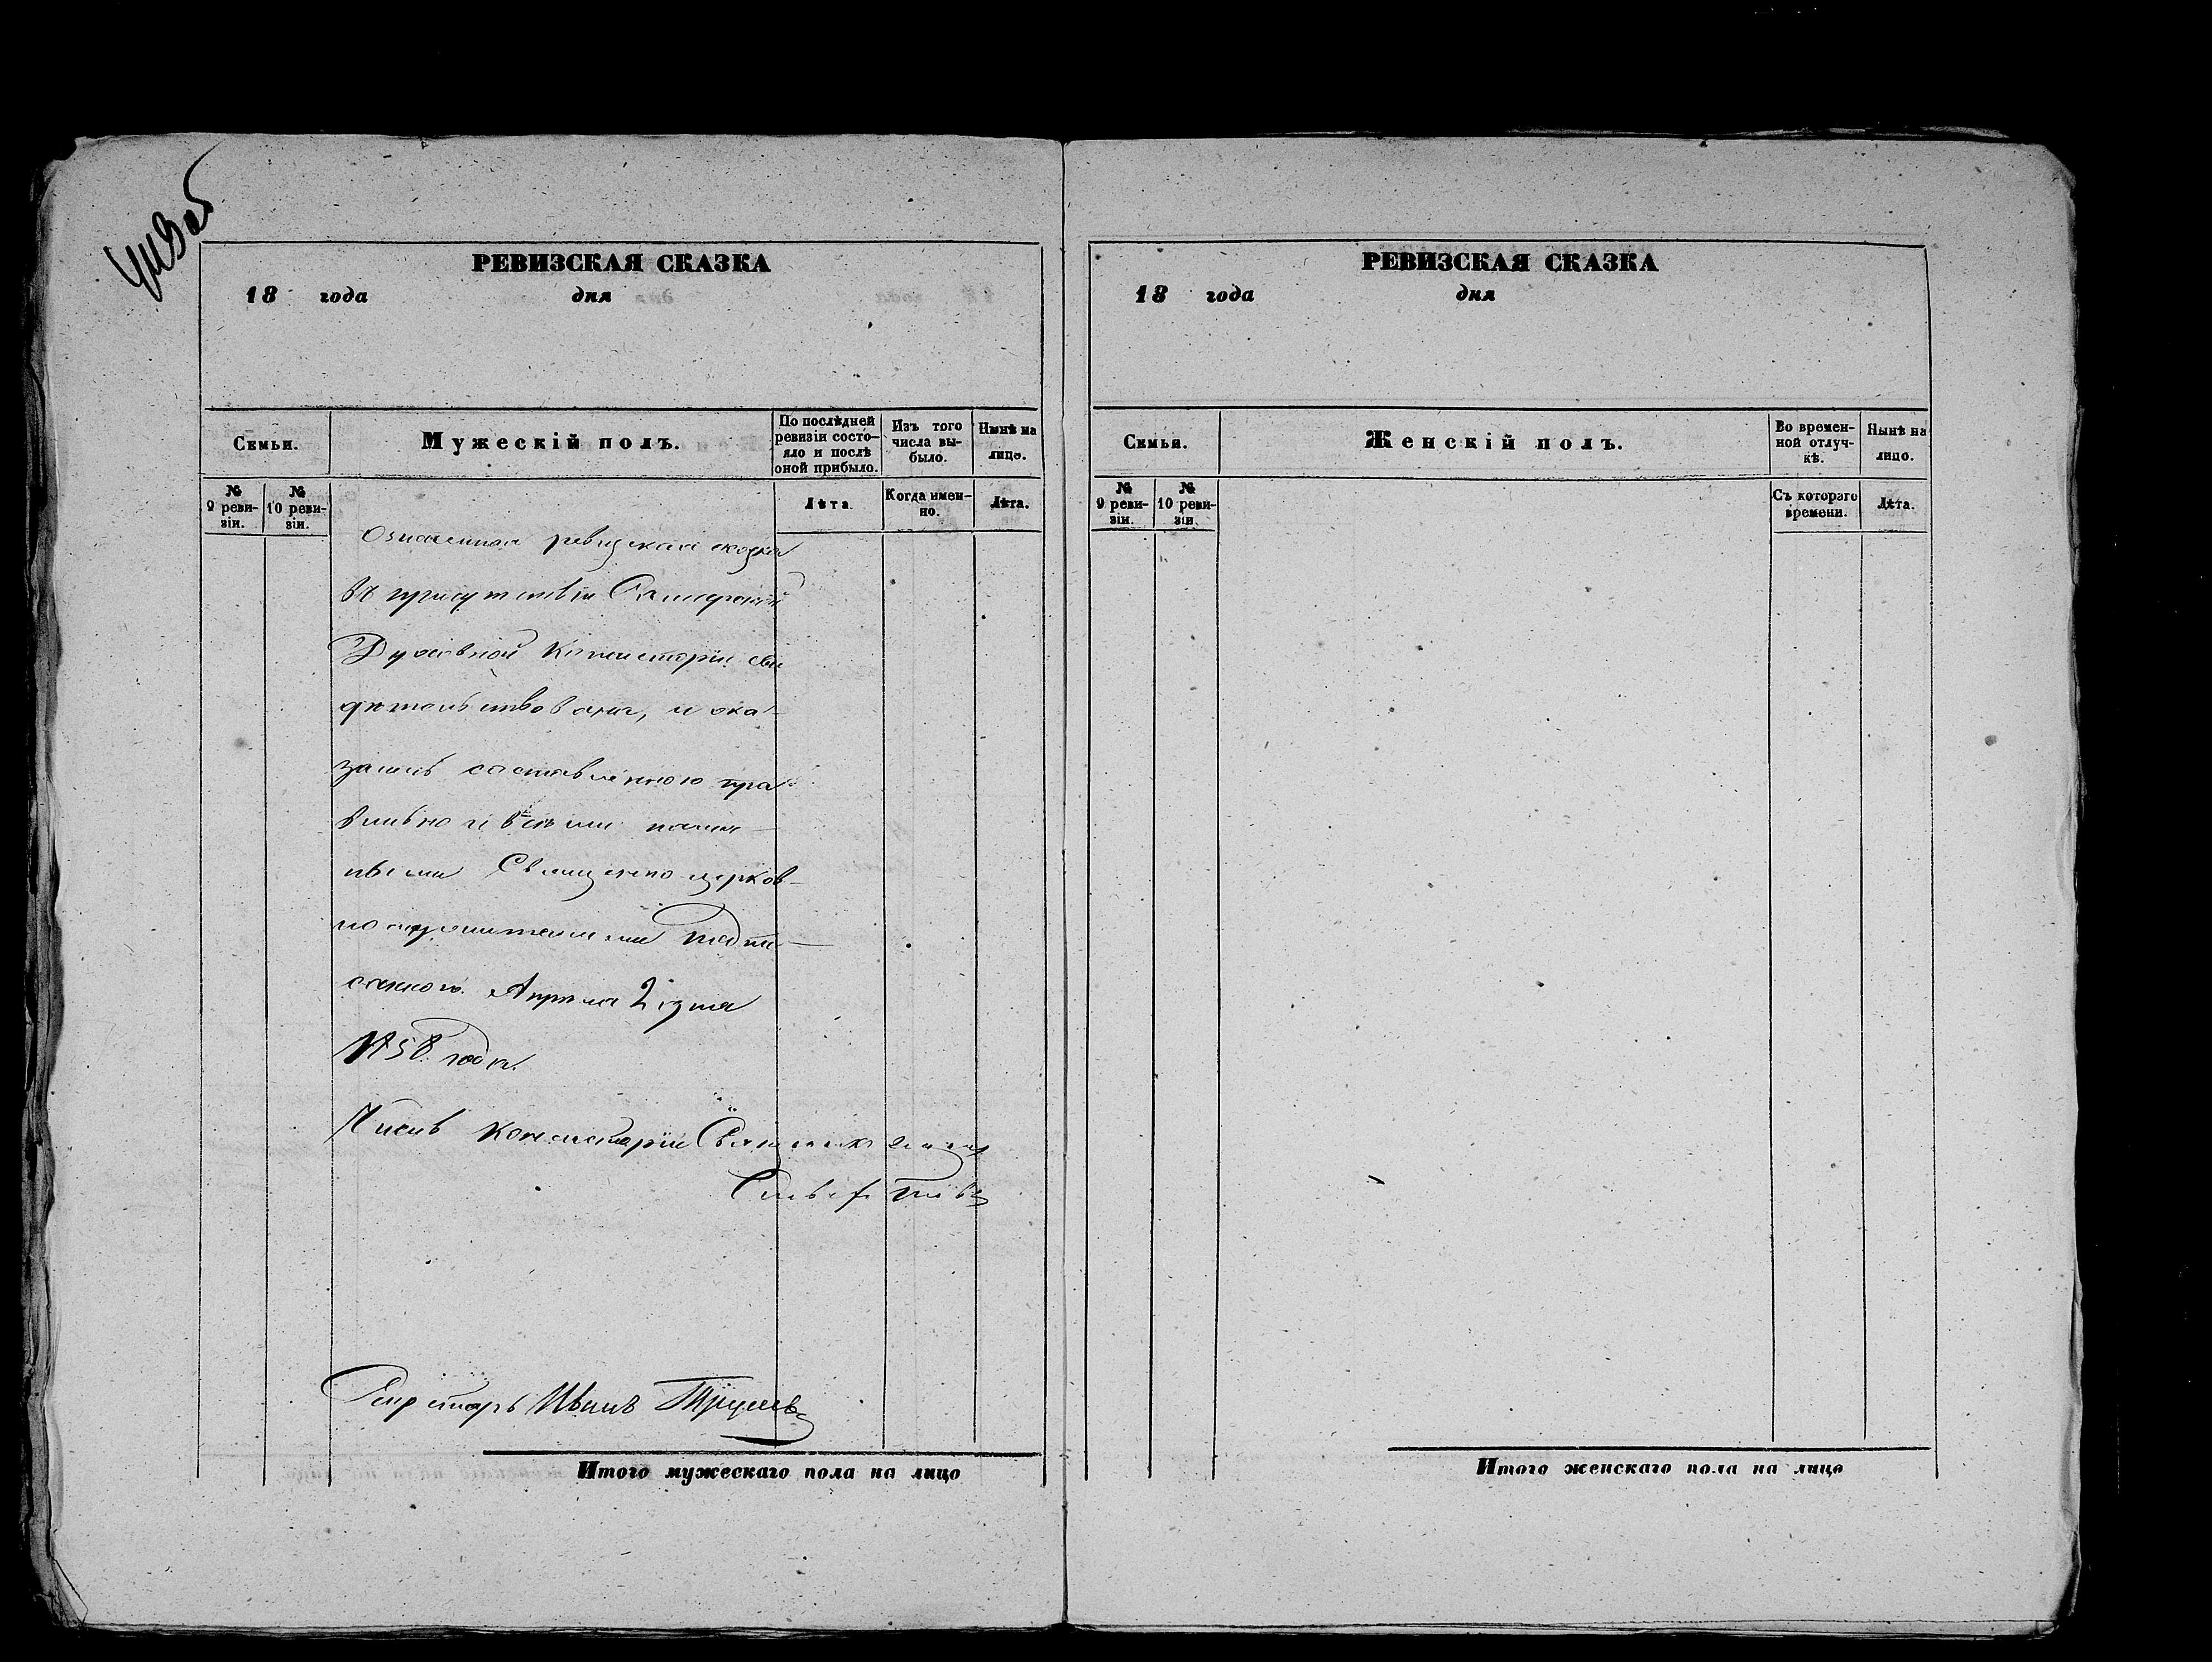 РЕВИЗСКАЯ СКАЗКА
18 года дня
Семьи.
Мужескій полъ.
По послѣдней
ревизіи состо-
яло и послѣ
оной прибыло.
Изъ того
числа вы-
было.
Нынѣ на
лицо.
№
9 реви-
зіи.
№
10 реви-
зіи.
Лѣта.
Когда имен-
но.
Лѣта.
Означенная ревизская сказка
въ присутствіи
Духовной Консисторіи сви
дѣтельствована, и ока-
залась составленною пра
вильно и всѣми налич-
ными Священно церков-
но служителями подпи-
санною. Апрѣля 2 дня
1858 года.
Членъ Консисторіи Священникъ
Секретарь Иванъ
Итого мужескаго пола на лицо
РЕВИЗСКАЯ СКАЗКА
18 года дня
Семьи.
Женскій полъ.
Во времен-
ной отлуч-
кѣ.
Нынѣ на
лицо.
№
9 реви-
зіи.
№
10 реви-
зіи.
Съ котораго
времени.
Лѣта.
Итого женскаго пола на лицо